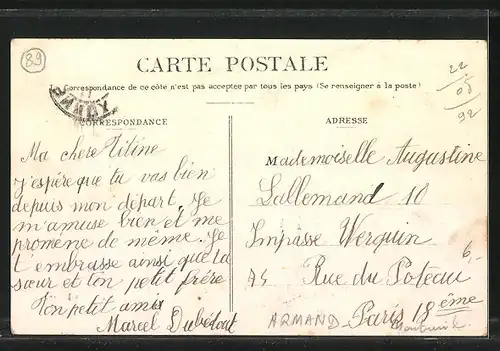 89
CARTE POSTALE
Correspondance de ce côte n'est pas acceptée par tous les pays (Se renseigner à la poste)
CORRESPONDANCE
Ma chere Titine
j'espère que tu vas bien
depuis mon départ. Je
m'amuse bien et me
promène de même. Je
t'embrasse ainsi que ta
sœur et ton petit frère
Ton petit ami
Marcel
ADRESSE
Mademoiselle Augustine
Lallemand 10
Impasse Werquin
74 Rue du Poteau
Paris 18ème
ARMAND
22
05
92
6,